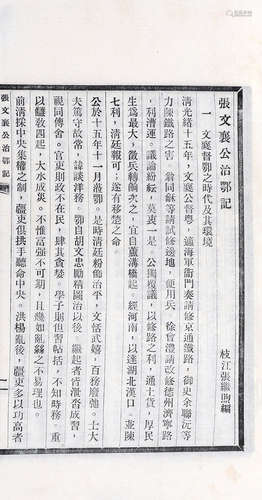 張文襄公治鄂記
枝江張繼煦編
一 文襄督鄂之時代及其環境
清光緒十五年，文襄公督粤，適海軍衙門奏請修京通鐵路，御史余聯沅等
力陳鐵路之害。翁同龢等請試修邊地，便用兵，徐會灃請改修德州濟寧路
，利漕運。議論紛紜，莫衷一是。公獨覆議，以修路之利，通土貨，厚民
生爲最大，徵兵轉餉次之，宜自蘆溝橋起，經河南，以達湖北漢口。並陳
七利，清廷報可，遂有移楚之命
公於十五年十一月涖鄂。是時清廷粉飾治平，文恬武嬉，百務廢弛。士大
夫篤守故常，諱談洋務。鄂自胡文忠勵精圖治以後，繼起者皆泄沓成習，
視同傳舍。官吏則政不在民，肆其貪婪。學子則但習帖括，不知時務。重
以讎敎四起，大水成災。不惟富强不可期，且幾如亂絲之不易理也。
前清採中央集權之制，疆吏俱拱手聽命中央。洪楊亂後，疆吏多以功高者
張文襄公治鄂記
一